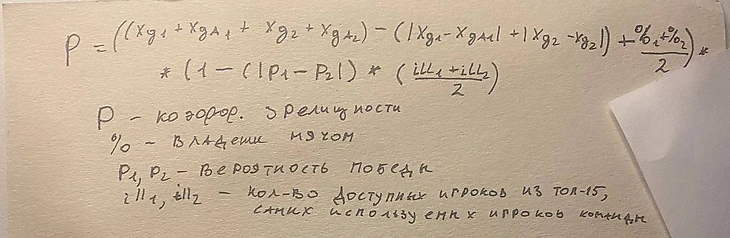 P = ((xg1 + xgA1 + xg2 + xgA2) - (|xg1 - xgA1| + |xg2 - xg2|) + %1 + %2 / 2) *
* (1 - (|P1 - P2|) * (ill1 + ill2 / 2)
P - коэфф. зрелищности
% - владени мячом
P1, P2 - вероятность победы
ill1, ill2 - кол-во доступных игроков из топ-15,
самих используемых игроков команды